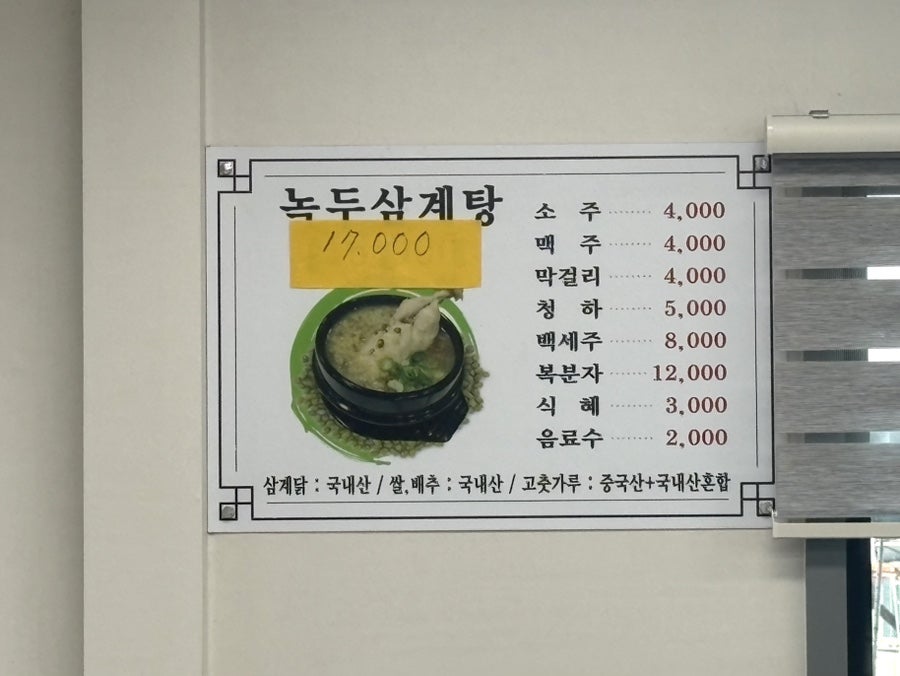 녹두삼계탕
17.000
소 주 ········ 4,000
맥 주 ········ 4,000
막걸리 ······ 4,000
청 하 ········ 5,000
백세주 ······ 8,000
복분자 ······ 12,000
식 혜 ········ 3,000
음료수 ······ 2,000
삼계닭 : 국내산 / 쌀,배추 : 국내산 / 고춧가루 : 중국산+국내산혼합